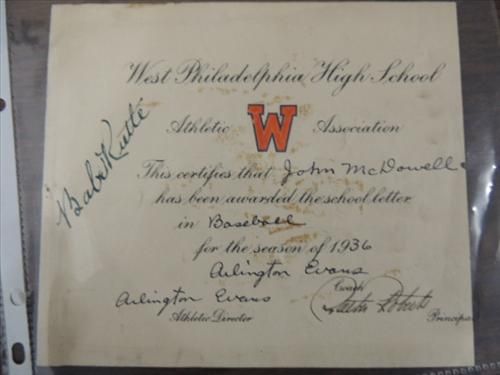 West Philadelphia High School
Athletic W Association
Babe Ruth
This certifies that John McDowell
has been awarded the school letter
in Baseball
for the season of 1936
Arlington Evans
Coach
Arlington Evans
Athletic Director
Principal